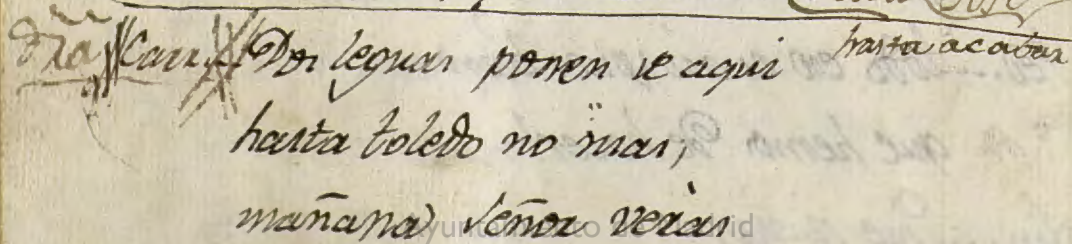 dra Carr. Dos leguas ponen de aqui hasta acabar
hasta toledo no mas,
mañana señor veras